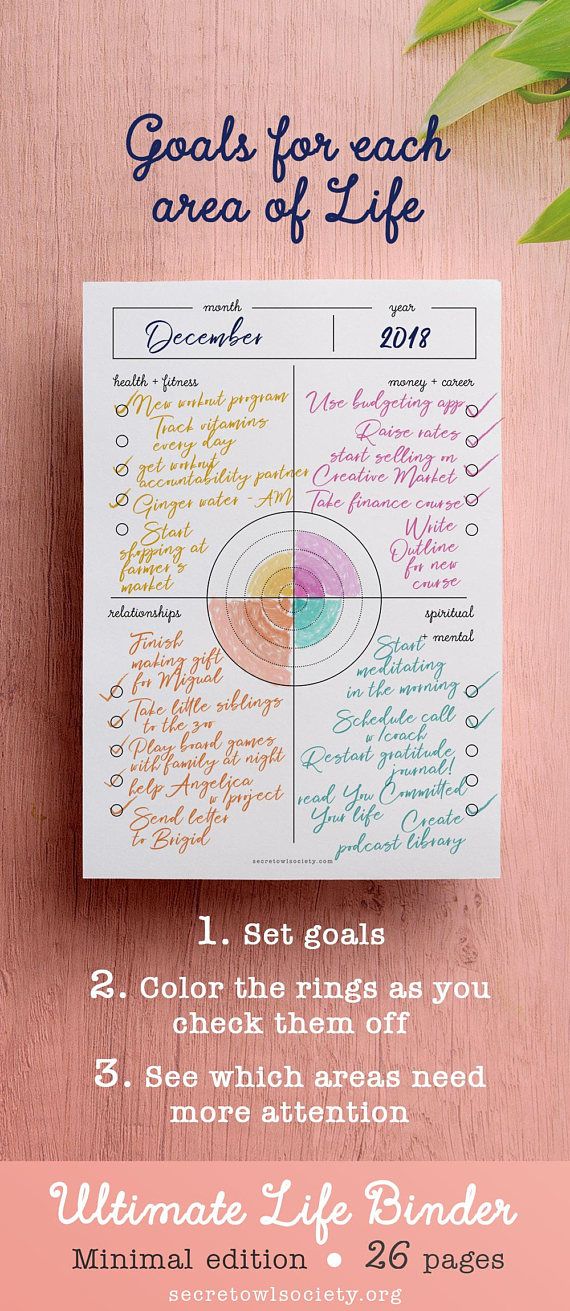 Goals for each
area of Life
month
year
December
2018
health + fitness
New workout program
Track vitamins
every day
get workout
accountability partner
Ginger water - AM
Start
shopping at
farmer's
market
money + career
Use budgeting app
Raise rates
start selling on
Creative Market
Take finance course
Write
Outline
for new
course
relationships
Finish
making gift
for Migual
Take little siblings
to the zoo
Play board games
with family at night
help Angelica
w/project
Send letter
to Brigid
spiritual
+ mental
Start
meditating
in the morning
Schedule call
w/coach
Restart gratitude
journal!
read You Committed
Your life
Create
podcast library
secretowlsociety.com
1. Set goals
2. Color the rings as you
check them off
3. See which areas need
more attention
Ultimate Life Binder
Minimal edition • 26 pages
secretowlsociety.org